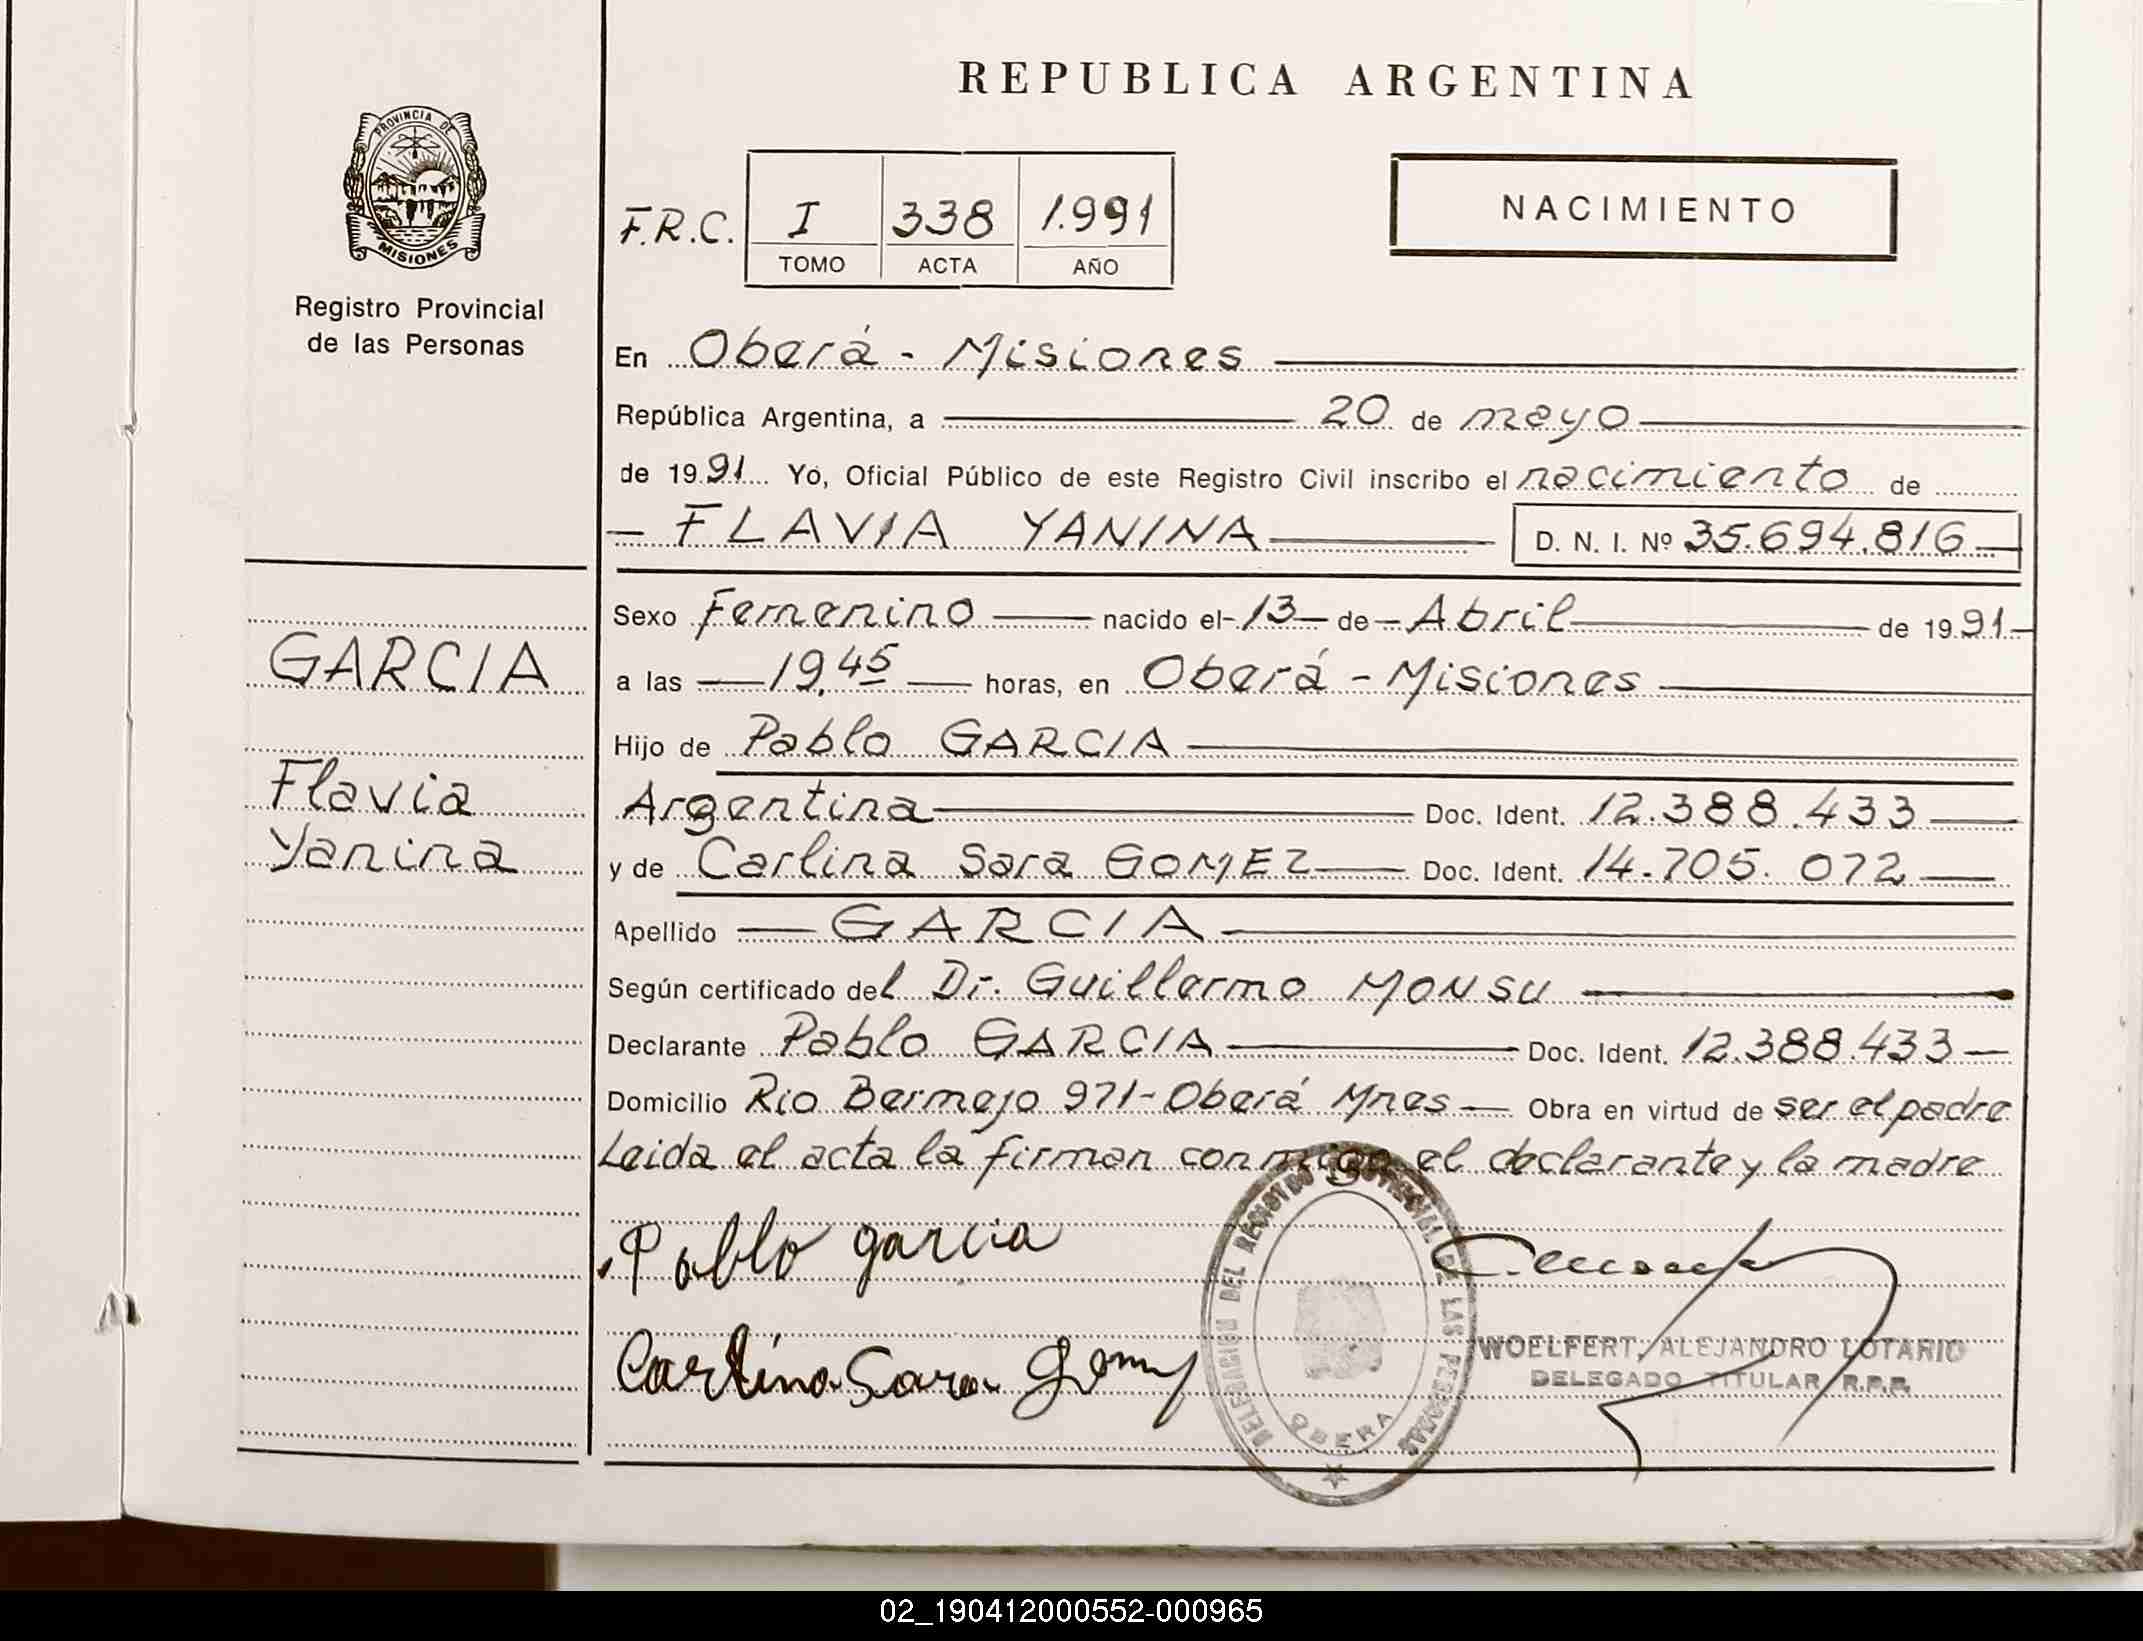 REPUBLICA ARGENTINA
PROVINCIA DE
MISIONES
Registro Provincial
de las Personas
F.R.C. I 338 1.991
TOMO ACTA AÑO
NACIMIENTO
En Oberá - Misiones
República Argentina, a 20 de mayo
de 1991 Yo, Oficial Público de este Registro Civil inscribo el nacimiento de
- FLAVIA YANINA D. N. I. Nº 35.694.816
GARCIA
Flavia
Yanina
Sexo Femenino nacido el 13 de Abril de 1991
a las 19,45 horas, en Oberá - Misiones
Hijo de Pablo GARCIA
Argentina Doc. Ident. 12.388.433
y de Carlina Sara GOMEZ Doc. Ident. 14.705.072
Apellido GARCIA
Según certificado del Dr. Guillermo MONSU
Declarante Pablo GARCIA Doc. Ident. 12.388.433
Domicilio Rio Bermejo 971 - Oberá Mnes Obra en virtud de ser el padre
Leida el acta la firman conmigo el declarante y la madre
Pablo garcia
Carlina Sara
DELEGACION DEL REGISTRO PROVINCIAL DE LAS PERSONAS
OBERA
WOELFERT, ALEJANDRO LOTARIO
DELEGADO TITULAR R.P.P.
02_190412000552-000965